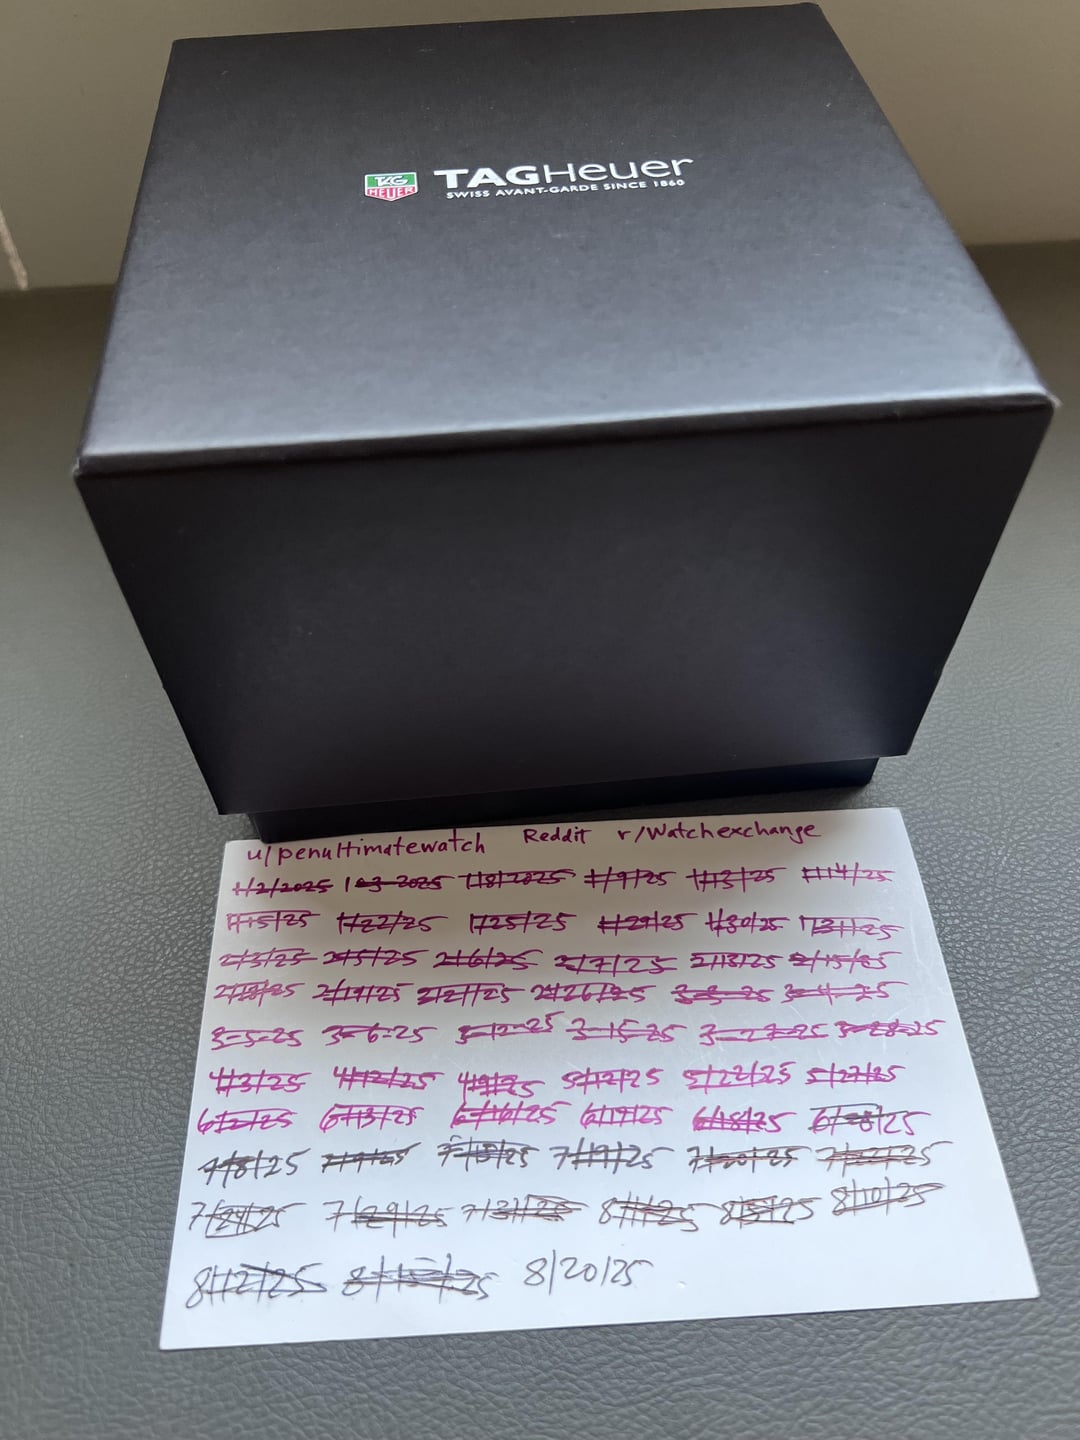 TAG HEUER TAGHeuer
SWISS AVANT-GARDE SINCE 1860
u/penultimatewatch Reddit r/Watchexchange
1/2/2025 1-3-2025 1/8/2025 1/9/25 1/13/25 1/14/25
1/15/25 1/22/25 1/25/25 1/29/25 1/30/25 1/31/25
2/3/25 2/5/25 2/6/25 2/7/25 2/13/25 2/15/25
2/18/25 2/19/25 2/21/25 2/26/25 3-3-25 3-4-25
3-5-25 3-6-25 3-12-25 3-15-25 3-27-25 3-28-25
4/3/25 4/12/25 5/12/25 5/22/25 5/27/25
6/2/25 6/13/25 6/16/25 6/17/25 6/18/25
7/8/25 7/9/25 7/19/25 7/20/25 7/22/25
7/24/25 7/29/25 7/31/25 8/1/25 8/5/25 8/10/25
8/12/25 8/15/25 8/20/25